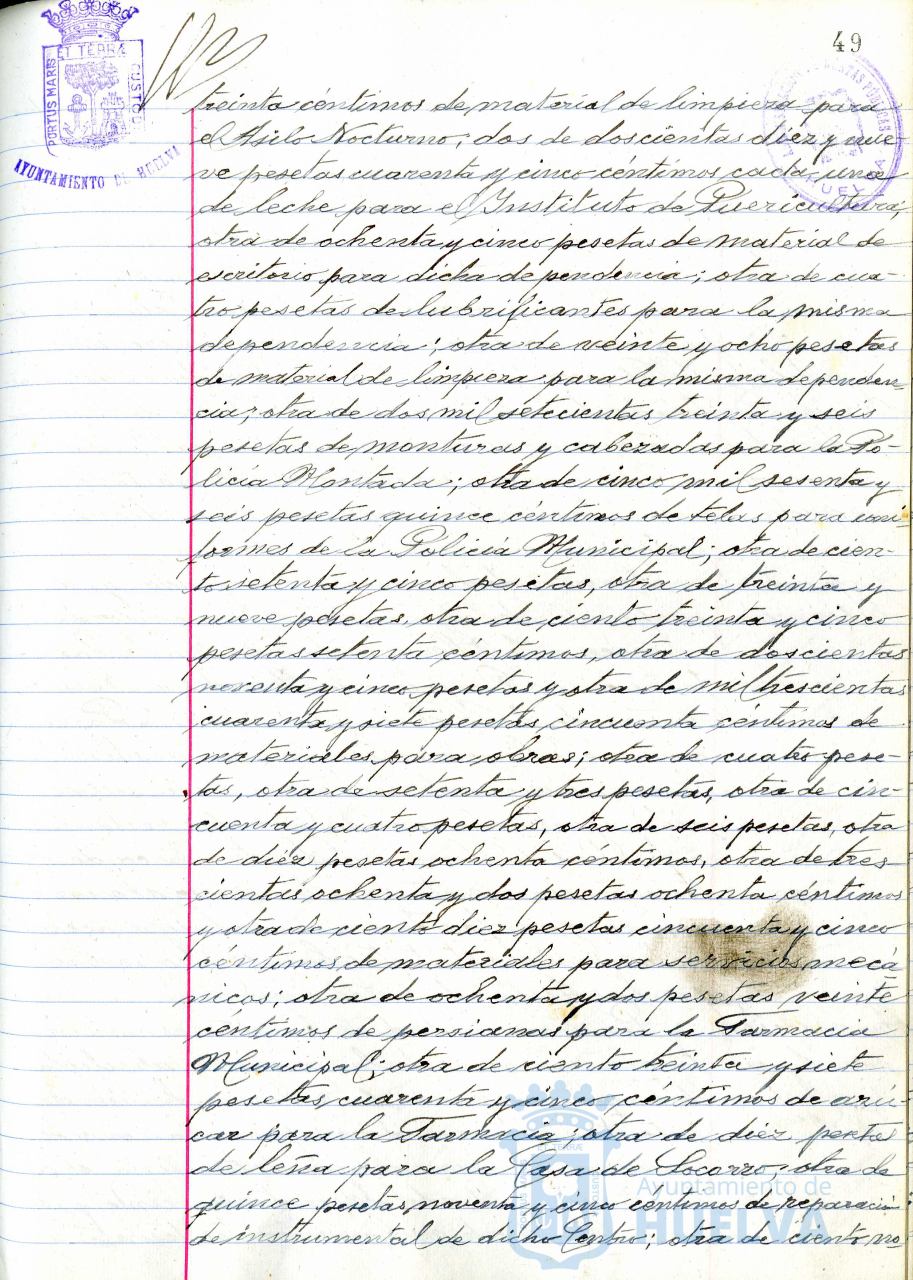 49
PORTUS MARIS ET TERRÆ CUSTODIA
AYUNTAMIENTO DE HUELVA
HUELVA
treinta céntimos de material de limpieza para
el Asilo Nocturno; dos de doscientas diez y nue-
ve pesetas cuarenta y cinco céntimos cada una
de leche para el Instituto de Puericultura;
otra de ochenta y cinco pesetas de material de
escritorio para dicha dependencia; otra de cua-
tro pesetas de lubrificantes para la misma
dependencia; otra de veinte y ocho pesetas
de material de limpieza para la misma dependen-
cia; otra de dos mil setecientas treinta y seis
pesetas de monturas y cabezadas para la Po-
licía Montada; otra de cinco mil sesenta y
seis pesetas quince céntimos de telas para uni-
formes de la Policía Municipal; otra de cien-
to setenta y cinco pesetas, otra de treinta y
nueve pesetas, otra de ciento treinta y cinco
pesetas setenta céntimos, otra de doscientas
noventa y cinco pesetas y otra de mil trescientas
cuarenta y siete pesetas cincuenta céntimos de
materiales para obras; otra de cuatro pese-
tas, otra de setenta y tres pesetas, otra de cin-
cuenta y cuatro pesetas, otra de seis pesetas, otra
de diez pesetas ochenta céntimos, otra de tres-
cientas ochenta y dos pesetas ochenta céntimos
y otra de ciento diez pesetas cincuenta y cinco
céntimos de materiales para servicios mecá-
nicos; otra de ochenta y dos pesetas veinte
céntimos de persianas para la Farmacia
Municipal; otra de ciento treinta y siete
pesetas cuarenta y cinco céntimos de azú-
car para la Farmacia; otra de diez pesetas
de leña para la Casa de Socorro; otra de
quince pesetas noventa y cinco céntimos de reparación
de instrumental de dicho Centro; otra de ciento no-
Ayuntamiento de
HUELVA